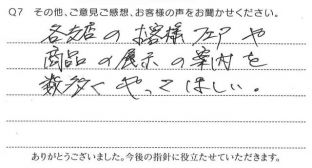 Q7 その他、ご意見ご感想、お客様の声をお聞かせください。
各支店のお客様フェアや
商品の展示の案内を
数多くやってほしい。
ありがとうございました。今後の指針に役立たせていただきます。